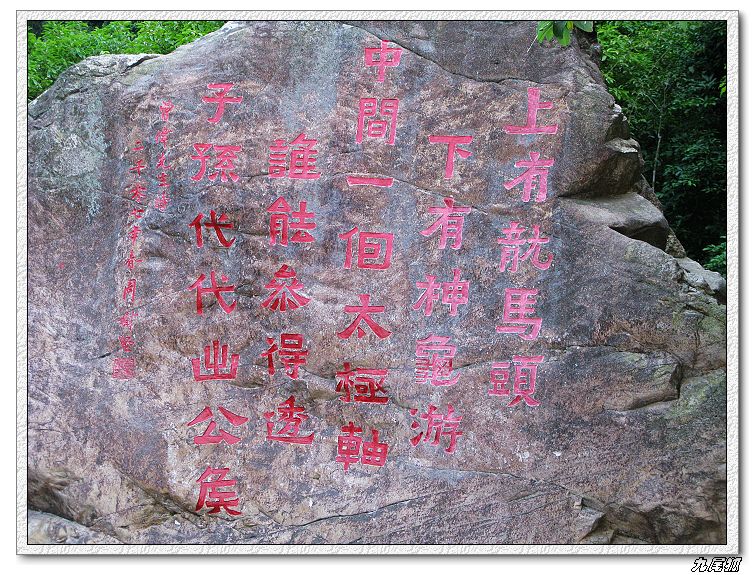 上有龍馬頭
下有神龜游
中間一個太極軸
誰能參得透
子孫代代出公侯
二千零七年
九尾狐